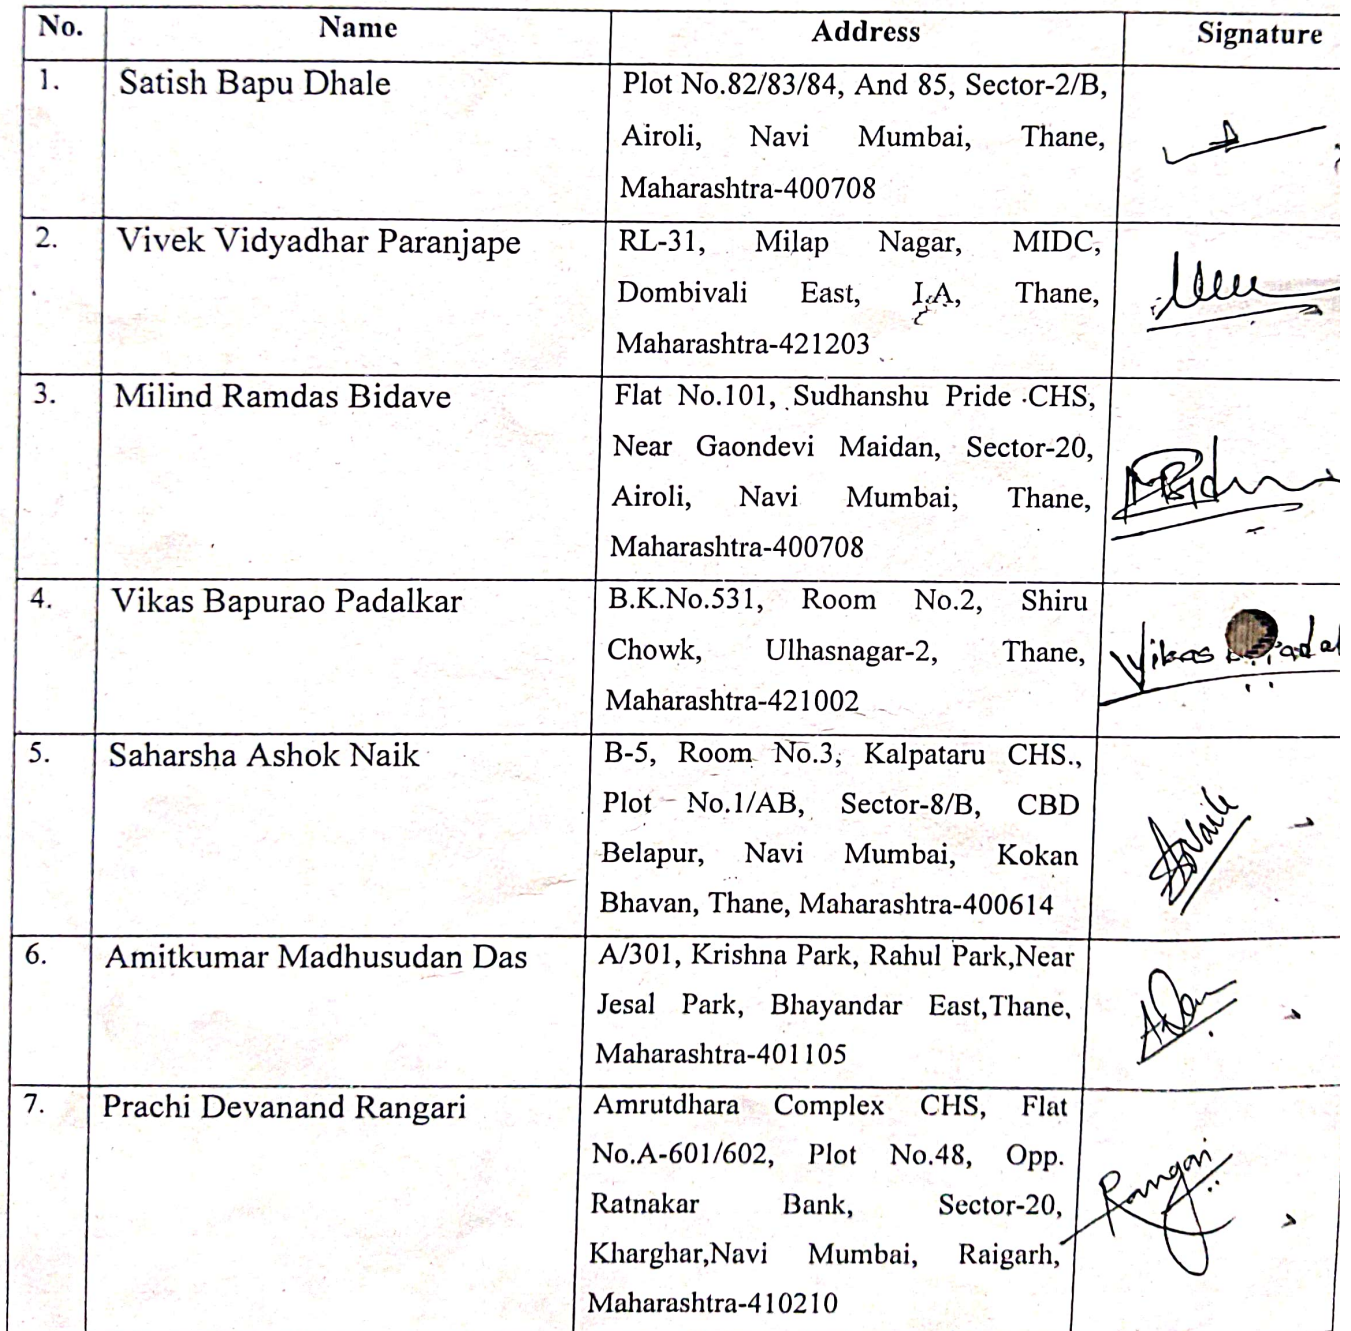 No. Name Address Signature
1. Satish Bapu Dhale Plot No.82/83/84, And 85, Sector-2/B,
Airoli, Navi Mumbai, Thane,
Maharashtra-400708
2. Vivek Vidyadhar Paranjape RL-31, Milap Nagar, MIDC,
Dombivali East, I.A, Thane,
Maharashtra-421203
3. Milind Ramdas Bidave Flat No.101, Sudhanshu Pride CHS,
Near Gaondevi Maidan, Sector-20,
Airoli, Navi Mumbai, Thane,
Maharashtra-400708
4. Vikas Bapurao Padalkar B.K.No.531, Room No.2, Shiru
Chowk, Ulhasnagar-2, Thane, Vikas
Maharashtra-421002
5. Saharsha Ashok Naik B-5, Room No.3, Kalpataru CHS.,
Plot No.1/AB, Sector-8/B, CBD
Belapur, Navi Mumbai, Kokan
Bhavan, Thane, Maharashtra-400614
6. Amitkumar Madhusudan Das A/301, Krishna Park, Rahul Park,Near
Jesal Park, Bhayandar East,Thane,
Maharashtra-401105
7. Prachi Devanand Rangari Amrutdhara Complex CHS, Flat
No.A-601/602, Plot No.48, Opp.
Ratnakar Bank, Sector-20, Rangari
Kharghar,Navi Mumbai, Raigarh,
Maharashtra-410210